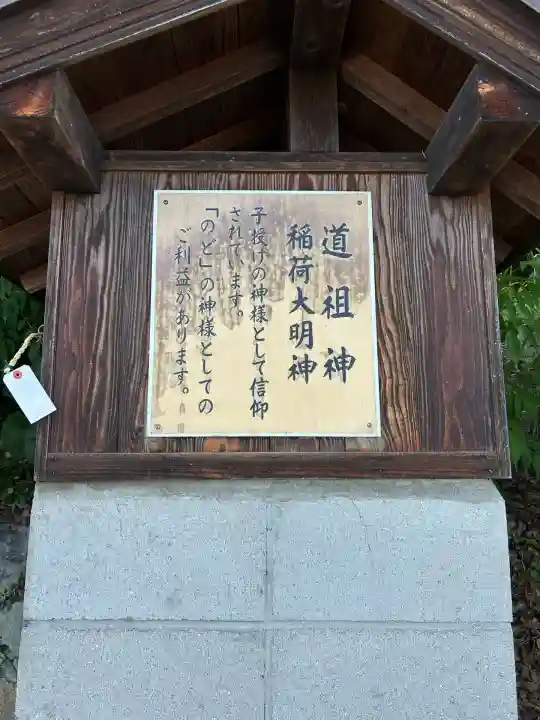 道祖神
稲荷大明神
子授けの神様として信仰
されています。
「のど」の神様としての
ご利益があります。